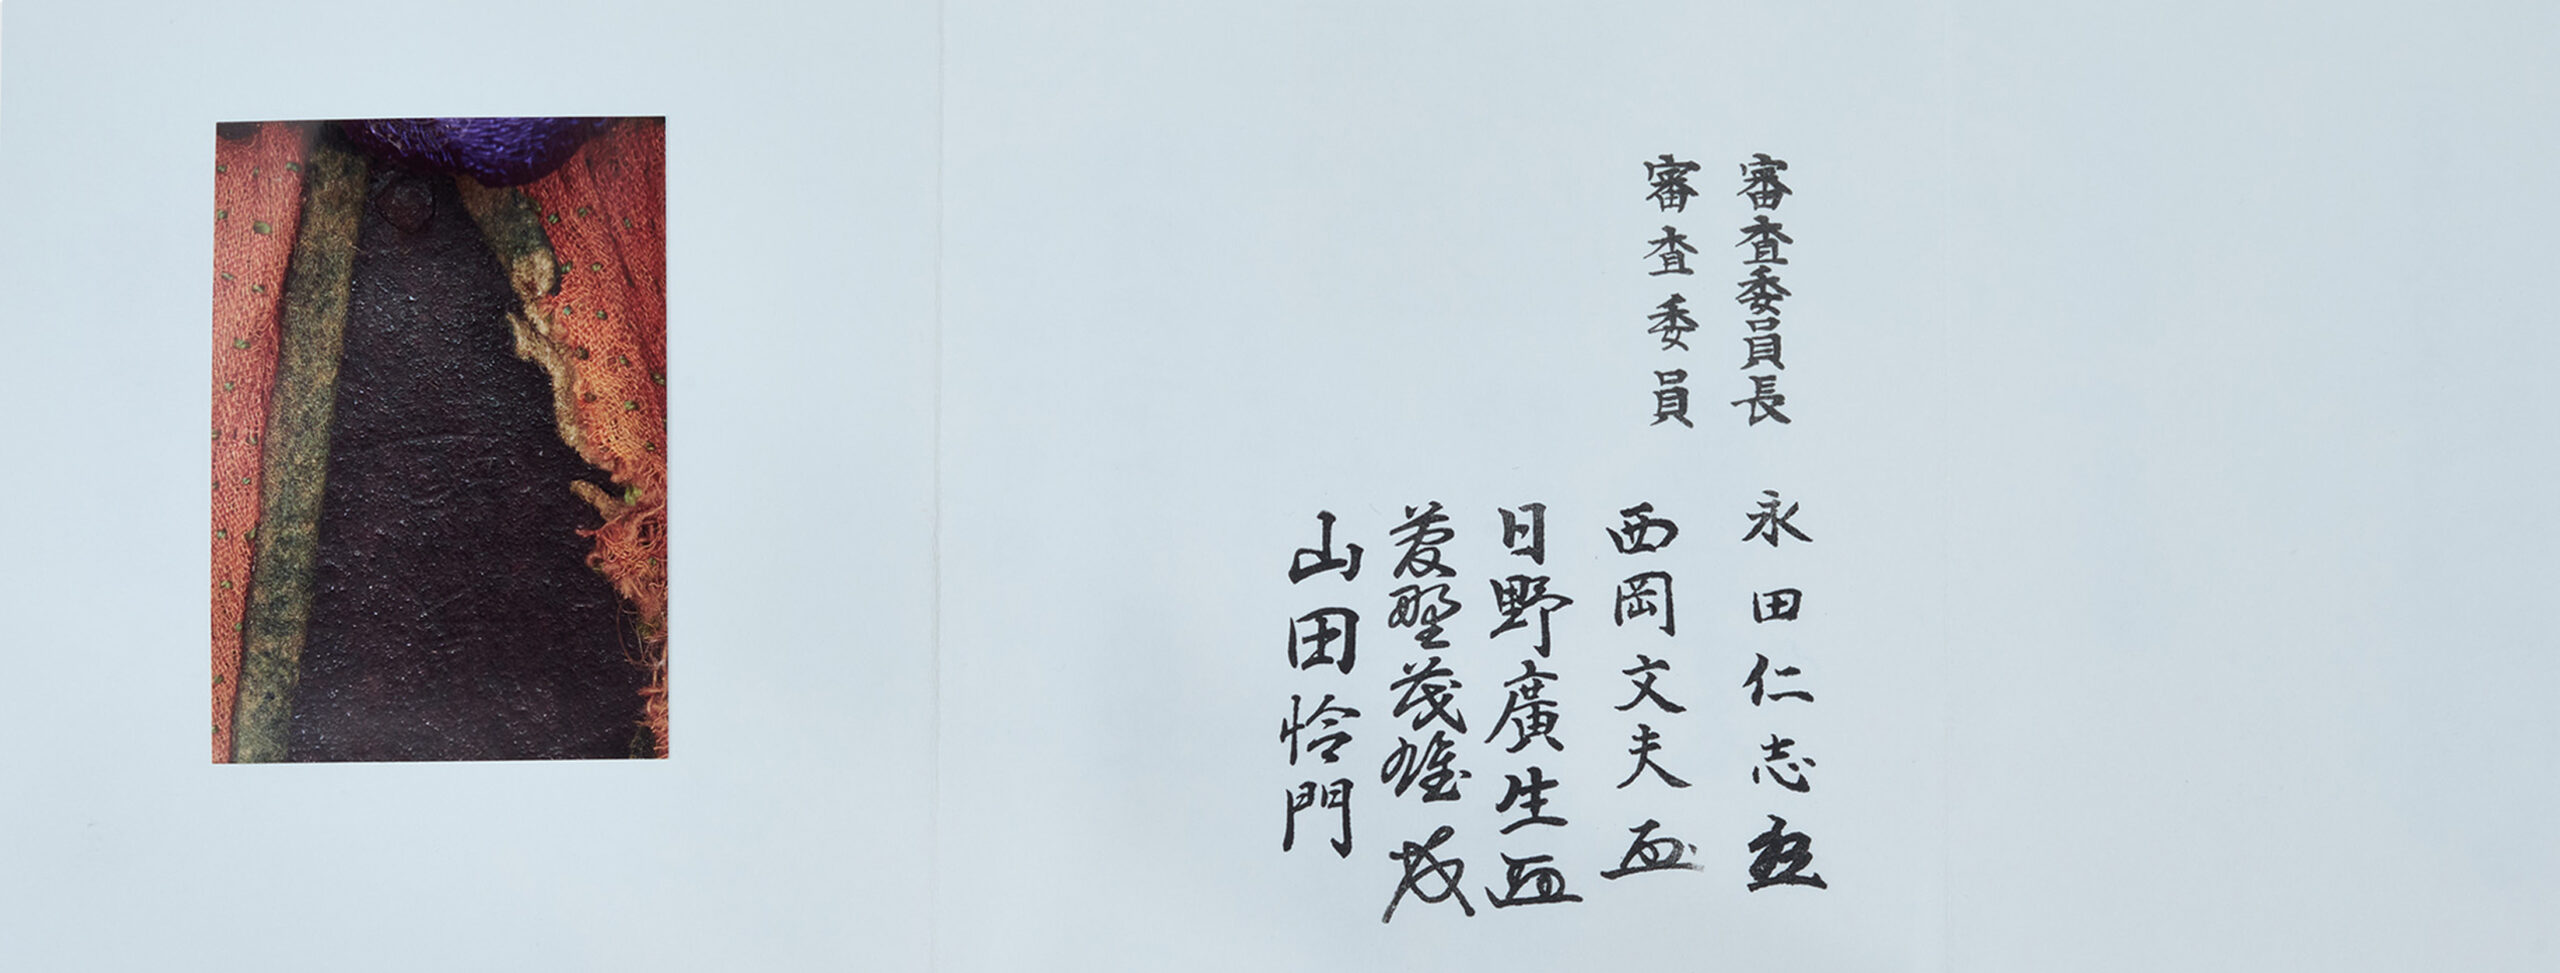 審査委員長 永田仁志
審査委員 西岡文夫
日野廣生
菱野茂雄
山田怜門